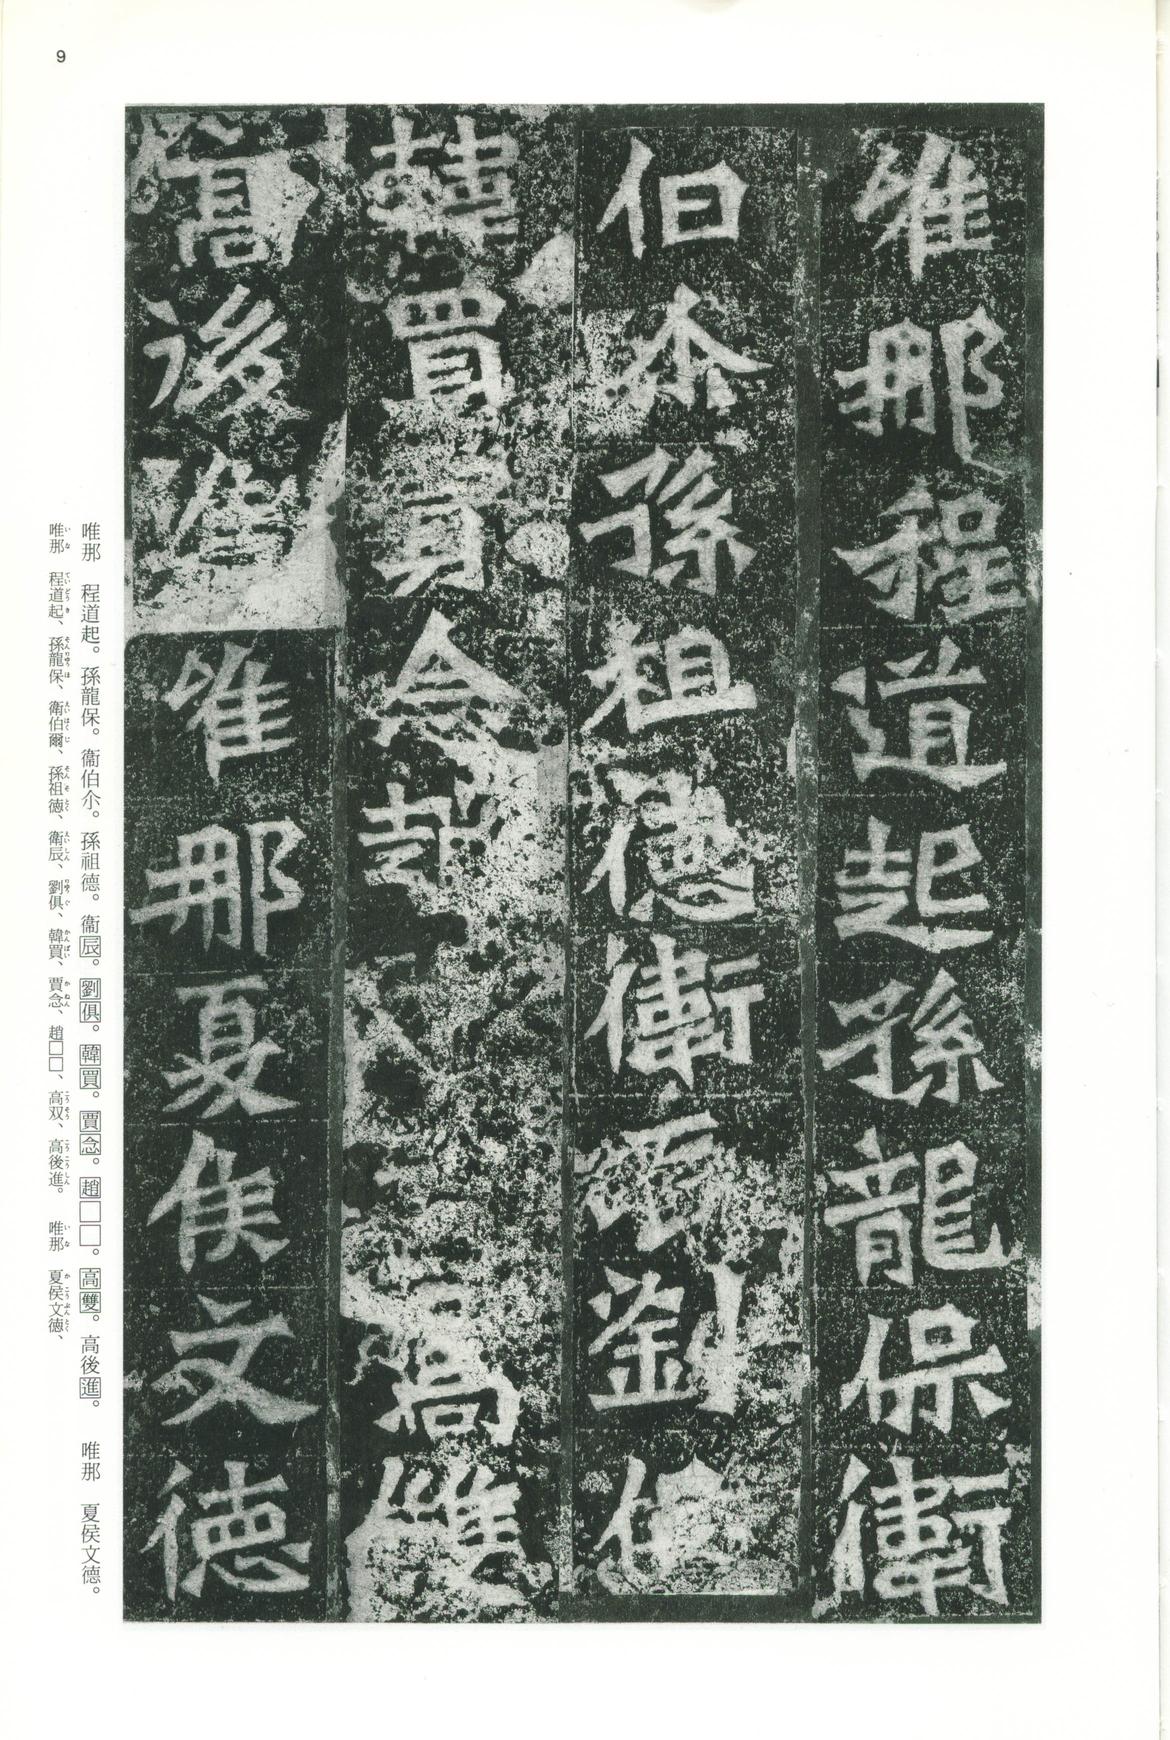 9
唯那程道起孫龍保衞
伯尒孫祖德衞辰劉俱
韓買賈念趙高雙
高後進唯那夏侯文德
唯那　程道起。孫龍保。衞伯尒。孫祖德。衞辰。劉俱。韓買。賈念。趙□□。高雙。高後進。　唯那　夏侯文德。
唯那　程道起、孫龍保、衛伯爾、孫祖徳、衛辰、劉俱、韓買、賈念、趙□□、高双、高後進。　唯那　夏侯文徳、